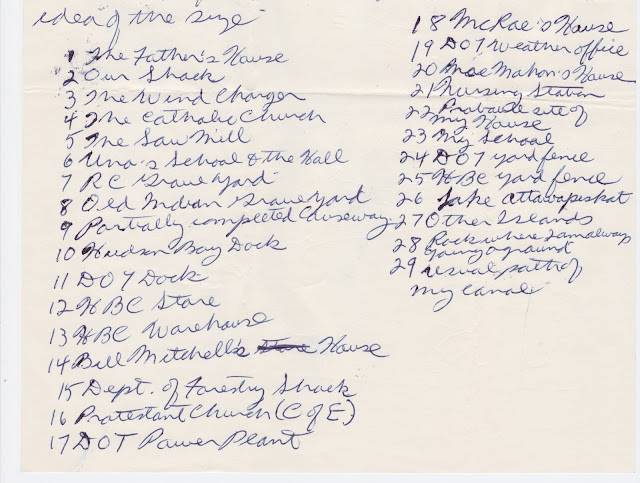 idea of the size
1 The Father's House
2 Our Shack
3 The Wind Charger
4 The Catholic Church
5 The Saw Mill
6 Una's School & the Hall
7 RC Grave Yard
8 Old Indian Grave Yard
9 Partially completed Causeway
10 Hudson Bay Dock
11 DOT Dock
12 HBC Store
13 HBC Warehouse
14 Bill Mitchell's House
15 Dept. of Forestry Shack
16 Protestant Church (C of E)
17 DOT Power Plant
18 McRae's House
19 DOT Weather office
20 MacMahon's House
21 Nursing Station
22 Probable site of
my House
23 My School
24 DOT yard fence
25 HBC yard fence
26 Lake Attawapiskat
27 Other Islands
28 Rock where I am always
going aground
29 usual path of
my canoe